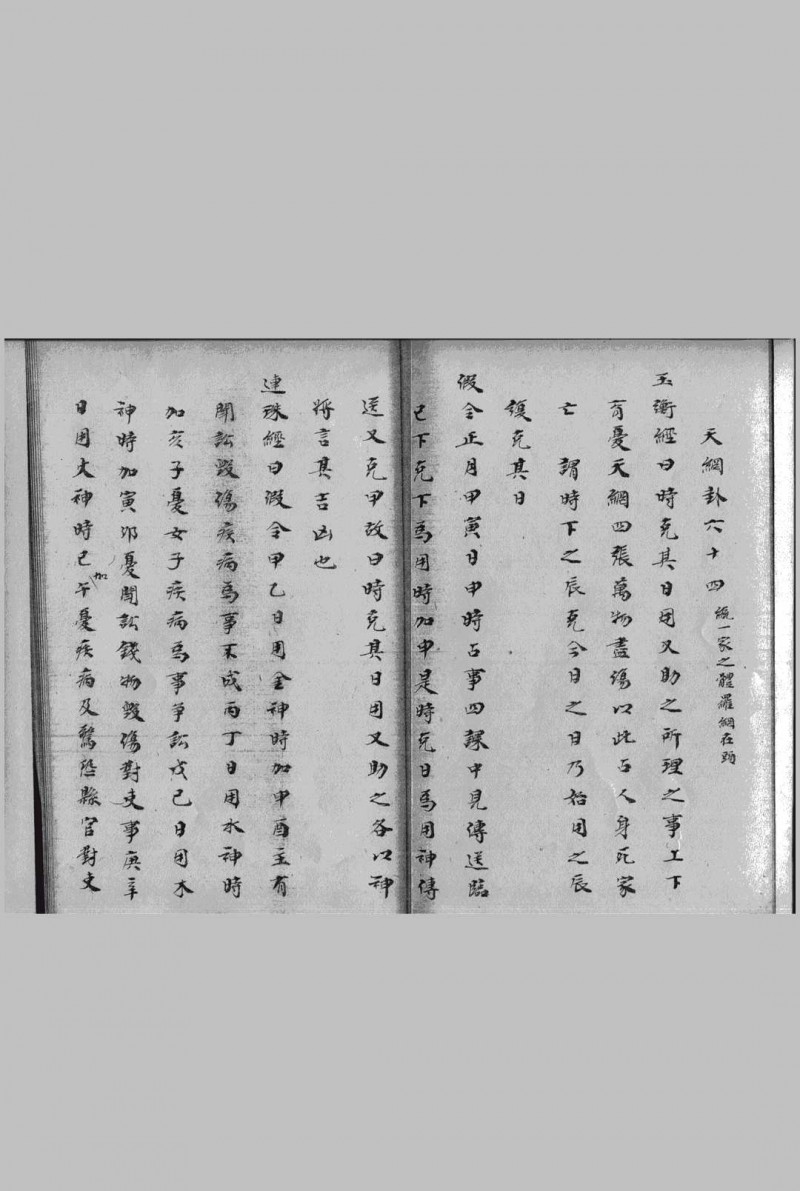 天網卦六十四 統一家之體羅網在頭
玉衡經曰時克其日用又助之所理之事上下
有憂天網四張萬物盡傷以此占人身死家
亡 謂時下之辰克今日之日乃始用之辰
復克其日
假令正月甲寅日申時占事四課中見傳送臨
巳下克下為用時加申是時克日為用神傳
送又克甲故曰時克其日用又助之各以神
將言其吉凶也
連珠經曰假令甲乙日用金神時加申酉主有
鬪訟毀傷疾病為事不成丙丁日用水神時
加亥子憂女子疾病為事爭訟戊己日用木
神時加寅卯憂鬪訟錢物毀傷對吏事庚辛
日用火神時加巳午憂疾病及驚恐縣官對吏